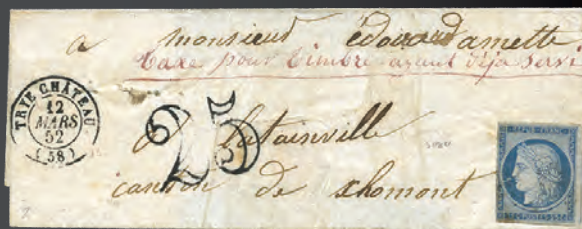 a monsieur édouard amette
taxe pour timbre ayant déja servi
TRYE CHÂTEAU
12
MARS
52
(58)
25
a latainville
canton de chomont
REPUB. FRANC.